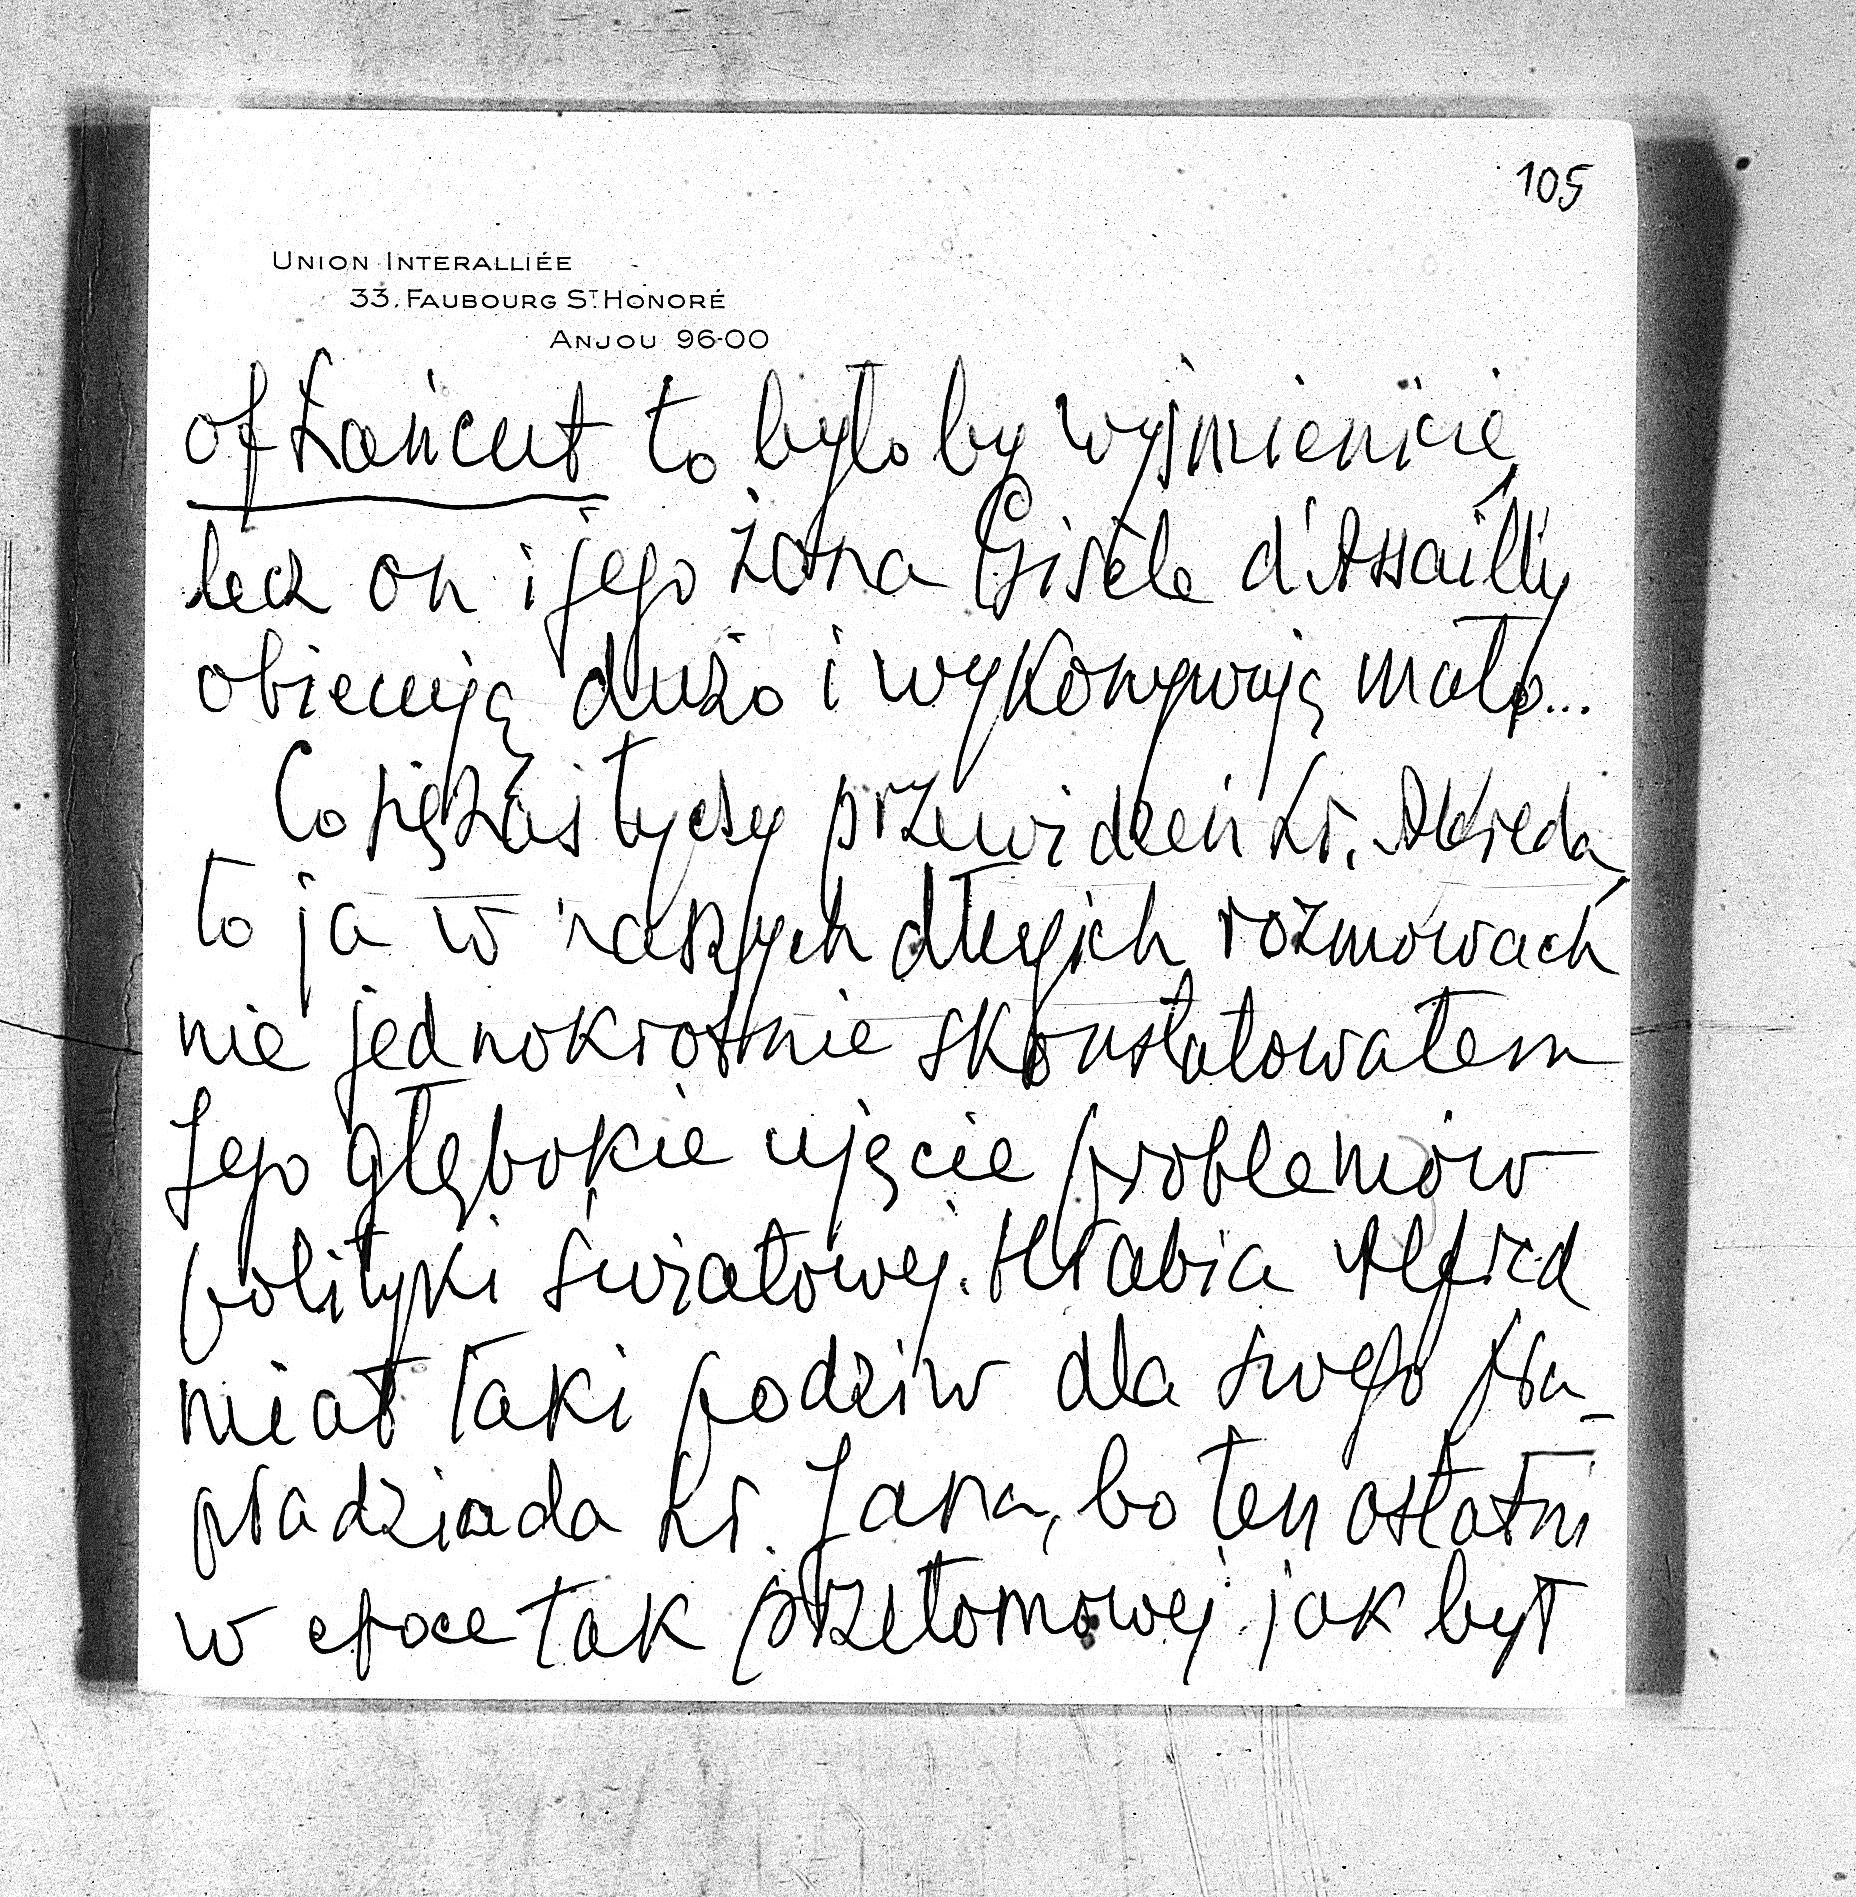 105
UNION INTERALLIÉE
33. FAUBOURG ST. HONORÉ
ANJOU 96-00
of Łańcut to było by wyśmienicie,
lecz on i jego żona Gisèle d'Assailly
obiecują dużo i wykonywują mało...
Co się zaś tyczy przewidzeń hr. Alfreda,
to ja w naszych długich rozmowach
nie jednokrotnie skonstatowałem
Jego głębokie ujęcie problemów
polityki światowej. Hrabia Alfred
miał taki podziw dla swego pra-
pradziada hr. Jana, bo ten ostatni
w epoce tak przełomowej jak był